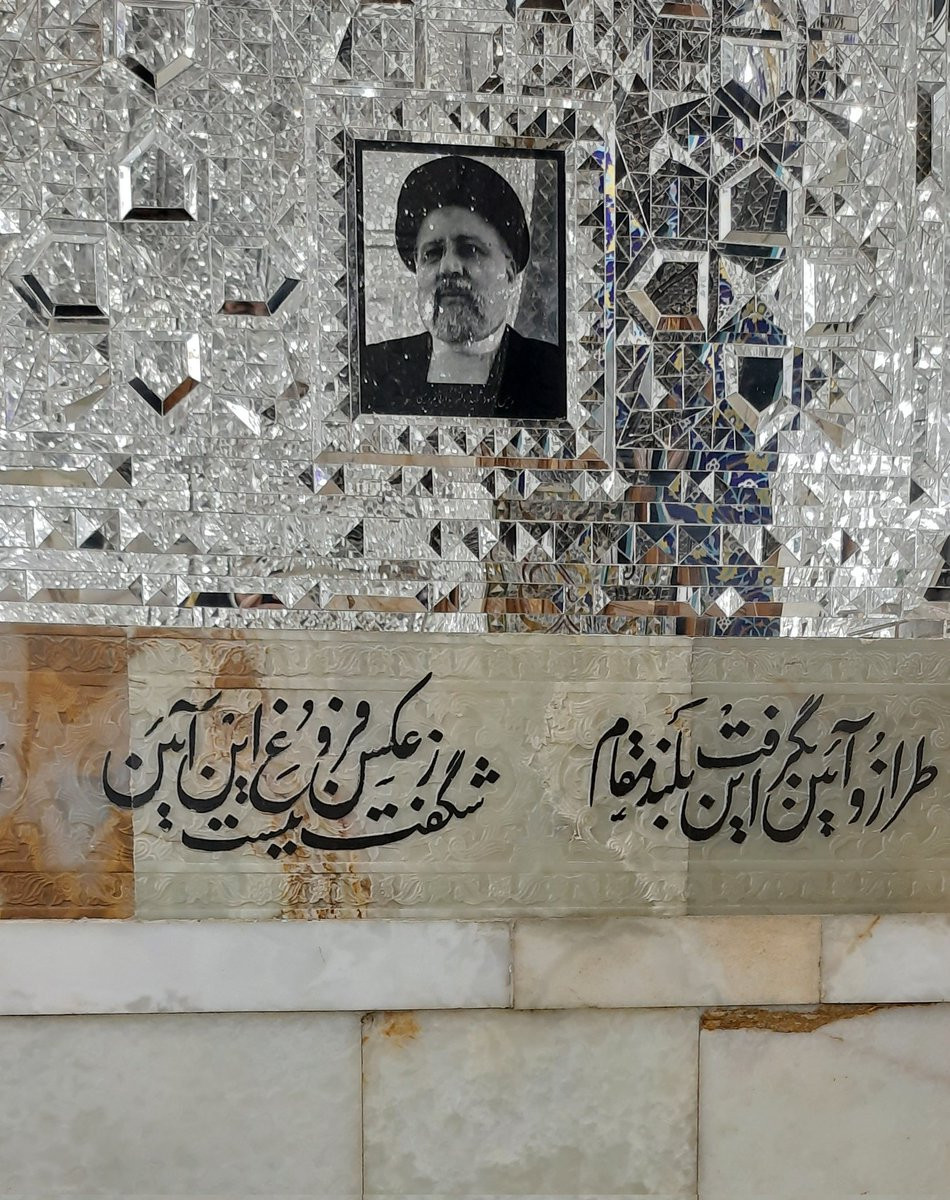 طراز و آئین بگرفت این بلند مقام
شگفت نیست ز عکس فروغ این آئین